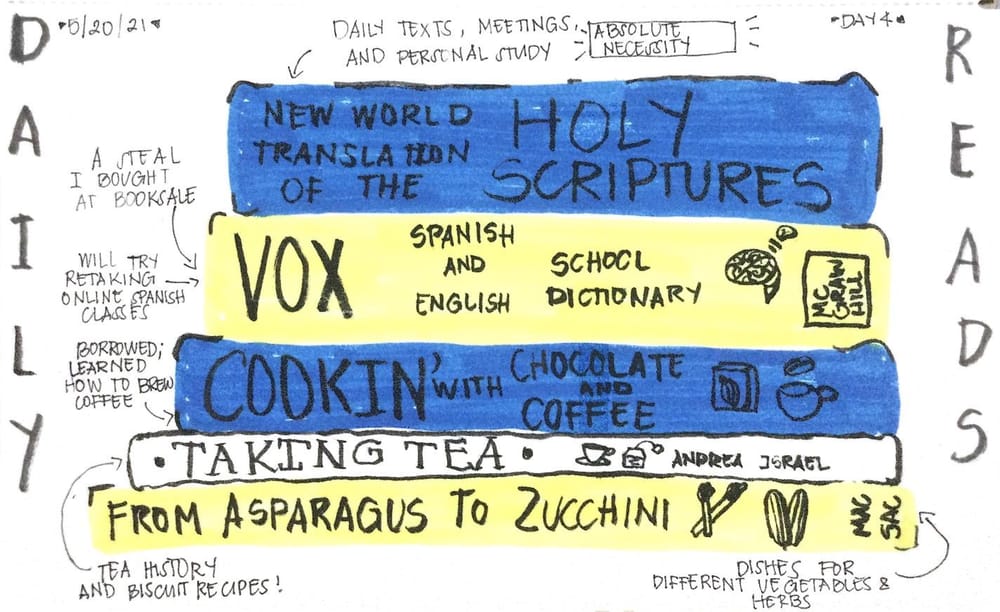 DAILY
READS
*5/20/21*
*DAY 4*
DAILY TEXTS, MEETINGS,
AND PERSONAL STUDY
ABSOLUTE
NECESSITY
NEW WORLD
TRANSLATION
OF THE
HOLY
SCRIPTURES
A STEAL
I BOUGHT
AT BOOKSALE
WILL TRY
RETAKING
ONLINE SPANISH
CLASSES
VOX
SPANISH
AND
ENGLISH
SCHOOL
DICTIONARY
MC
GRAW
HILL
BORROWED;
LEARNED
HOW TO BREW
COFFEE
COOKIN' WITH
CHOCOLATE
AND
COFFEE
• TAKING TEA •
ANDREA ISRAEL
FROM ASPARAGUS TO ZUCCHINI
MAC
SAC
TEA HISTORY
AND BISCUIT RECIPES!
DISHES FOR
DIFFERENT VEGETABLES &
HERBS